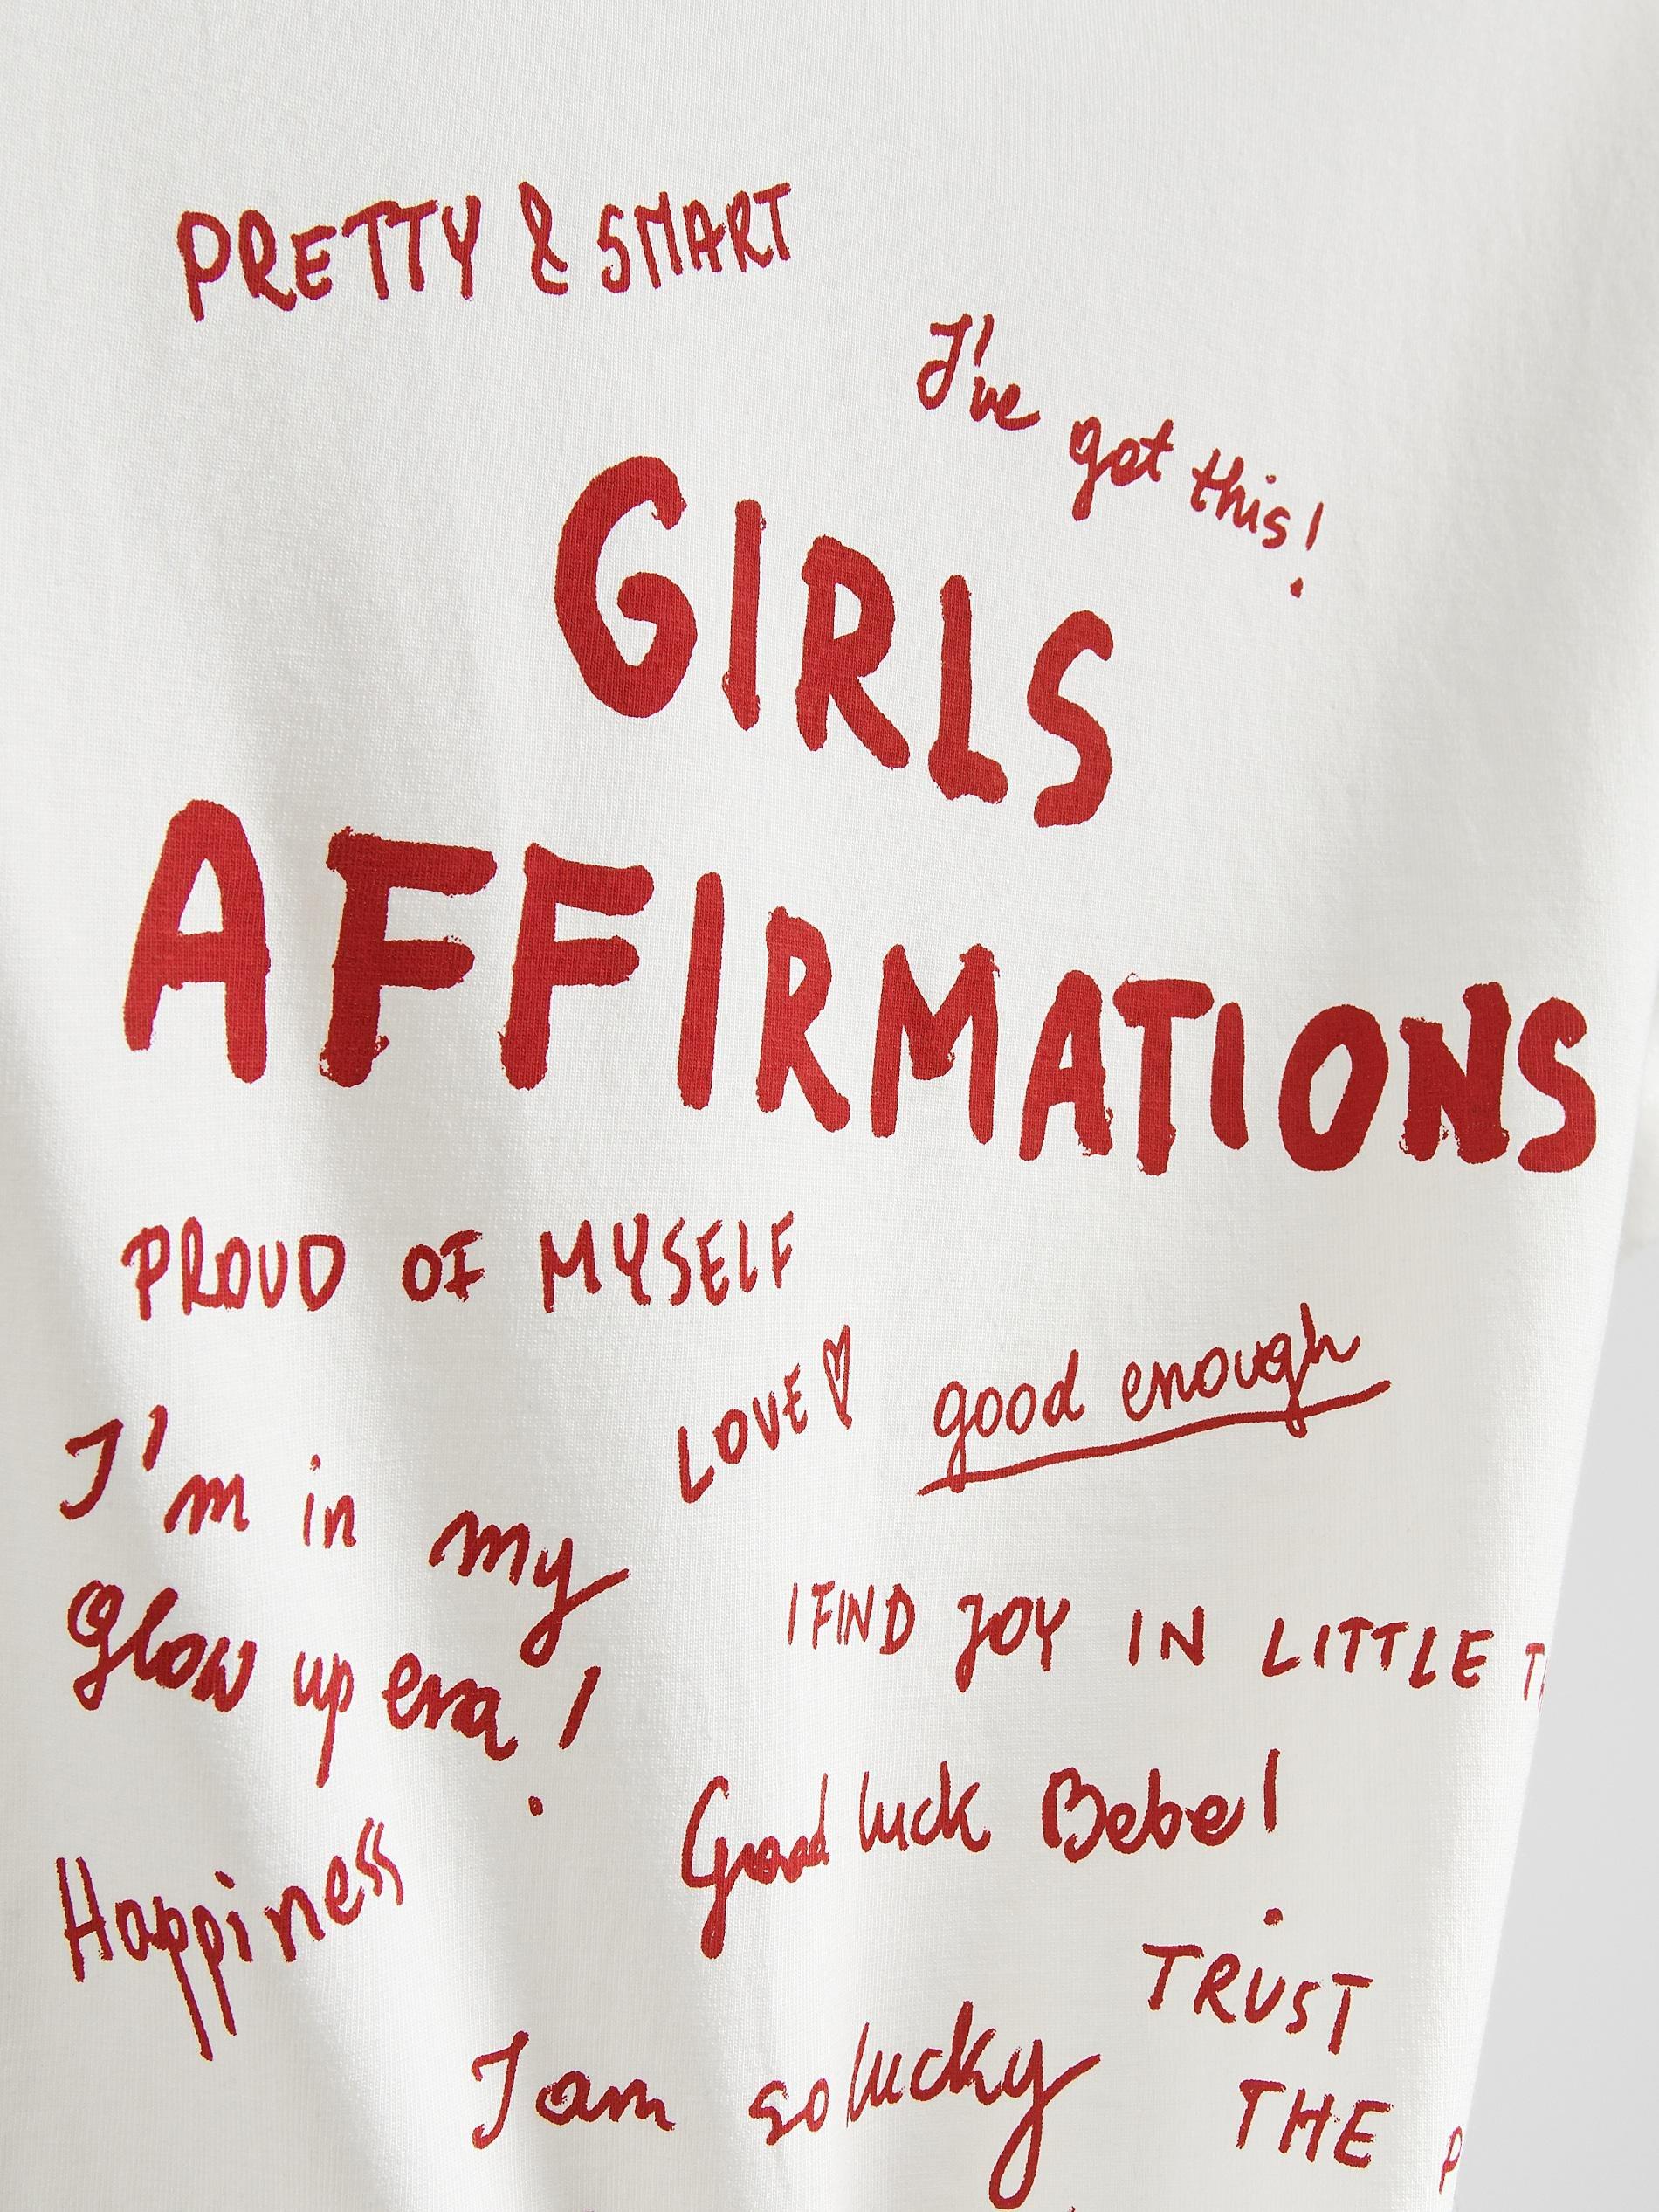 PRETTY & SMART
I've got this!
GIRLS
AFFIRMATIONS
PROUD OF MYSELF
LOVE♡
good enough
I'm in my
glow up era!
I FIND JOY IN LITTLE
Good luck Bebe!
Happiness
TRUST
I am so lucky
THE